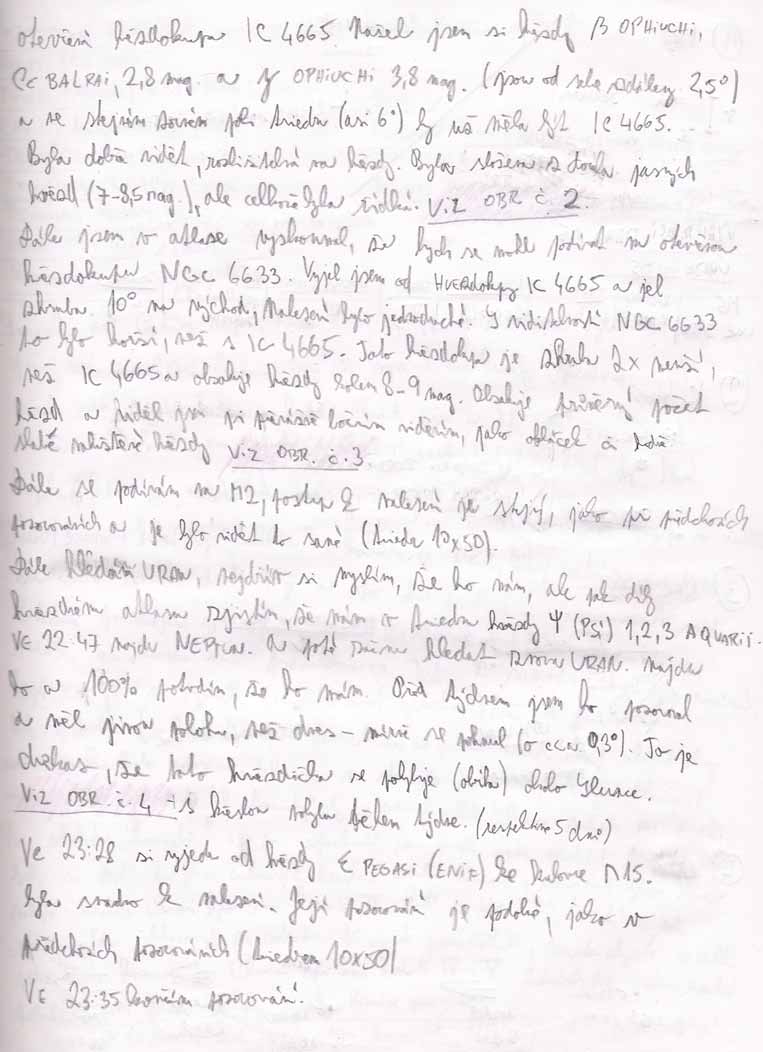 otevřená hvězdokupa IC 4665. Našel jsem si hvězdy β OPHIUCHI,
CcBALRAi, 2,8 mag. a γ OPHIUCHI 3,8 mag. (jsou od sebe vzdáleny 2,5°)
a ve stejném zorném poli triedru (asi 6°) by už měla být IC 4665.
Byla dobře vidět, rozlišitelná na hvězdy. Byla složena z jasných
hvězd (7-8,5 mag.), ale celkově byla řídká. Viz OBR č. 2.
Dále jsem v atlase vyskoumal, že bych se mohl podívat na otevřenou
hvězdokupu NGC 6633. Vyjel jsem od HVĚZdokupy IC 4665 a jel
zhruba 10° na východ, nalezení bylo jednoduché. S viditelností NGC 6633
to bylo horší, než s IC 4665. Tato hvězdokupa je zhruba 2x menší,
než IC 4665 a obsahuje hvězdy kolem 8-9 mag. Obsahuje průměrný počet
hvězd a viděl jsem ji převážně bočním viděním, jako obláček a
slabě hvězdy Viz OBR. č. 3.
Dále se podívám na M2, postup k nalezení je stejný, jako při předchozích
pozorováních a je bylo vidět to samé (triedr 10x50).
Dále hledám URAN, nejdřív si myslím, že ho mám, ale pak díky
hvězdném atlasu zjistím, že mám v triedru hvězdy Ψ (PSi) 1,2,3 AQUARII.
VE 22:47 najdu NEPTUN. A poté začnu hledat znovu URAN. Najdu
ho a 100% potvrdím, že ho mám. Před týdnem jsem ho pozoroval
a měl jinou polohu, než dnes - mírně se pohnul (o cca 0,3°). To je
důkaz, že tato hvězdička se pohybuje (obíhá) okolo Slunce.
Viz OBR. č. 4 - s kresbou pohybu během týdne. (respektive 5 dnů)
Ve 23:28 si vyjedu od hvězdy ε PEGASI (ENIF) ke kulovce M15.
Byla snadno k nalezení. Její pozorování je podobné, jako v
předchozích pozorováních (triedrem 10x50)
VE 23:35 končím pozorování.